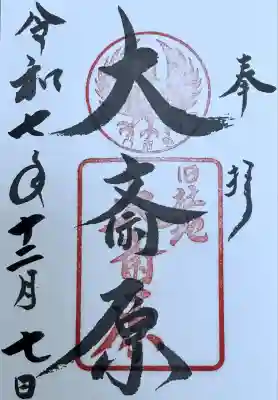 奉拝
大斎原
旧社地
令和七年十二月七日